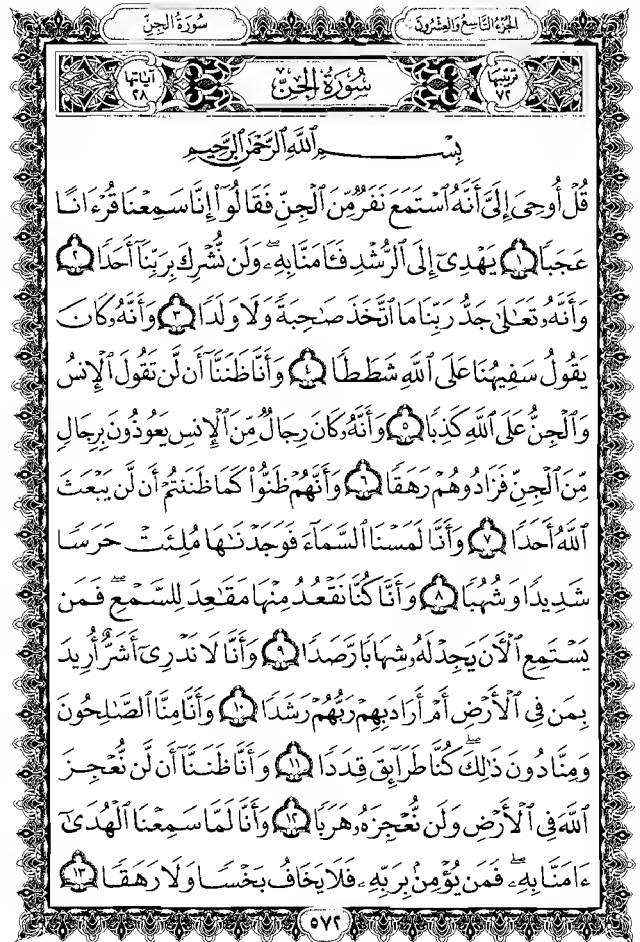 سُورَةُ الجِنّ
الجُزْءُ التَّاسِعُ وَالعِشْرُونَ
ترتيبها ٧٢
سُورَةُ الجِنّ
آياتها ٢٨
بِسْمِ ٱللَّهِ ٱلرَّحْمَٰنِ ٱلرَّحِيمِ
قُلْ أُوحِيَ إِلَيَّ أَنَّهُ ٱسْتَمَعَ نَفَرٌ مِّنَ ٱلْجِنِّ فَقَالُوٓا۟ إِنَّا سَمِعْنَا قُرْءَانًا
عَجَبًا ١ يَهْدِىٓ إِلَى ٱلرُّشْدِ فَـَٔامَنَّا بِهِۦ ۖ وَلَن نُّشْرِكَ بِرَبِّنَآ أَحَدًا ٢
وَأَنَّهُۥ تَعَٰلَىٰ جَدُّ رَبِّنَا مَا ٱتَّخَذَ صَٰحِبَةً وَلَا وَلَدًا ٣ وَأَنَّهُۥ كَانَ
يَقُولُ سَفِيهُنَا عَلَى ٱللَّهِ شَطَطًا ٤ وَأَنَّا ظَنَنَّآ أَن لَّن تَقُولَ ٱلْإِنسُ
وَٱلْجِنُّ عَلَى ٱللَّهِ كَذِبًا ٥ وَأَنَّهُۥ كَانَ رِجَالٌ مِّنَ ٱلْإِنسِ يَعُوذُونَ بِرِجَالٍ
مِّنَ ٱلْجِنِّ فَزَادُوهُمْ رَهَقًا ٦ وَأَنَّهُمْ ظَنُّوا۟ كَمَا ظَنَنتُمْ أَن لَّن يَبْعَثَ
ٱللَّهُ أَحَدًا ٧ وَأَنَّا لَمَسْنَا ٱلسَّمَآءَ فَوَجَدْنَٰهَا مُلِئَتْ حَرَسًا
شَدِيدًا وَشُهُبًا ٨ وَأَنَّا كُنَّا نَقْعُدُ مِنْهَا مَقَٰعِدَ لِلسَّمْعِ ۖ فَمَن
يَسْتَمِعِ ٱلْـَٔانَ يَجِدْ لَهُۥ شِهَابًا رَّصَدًا ٩ وَأَنَّا لَا نَدْرِىٓ أَشَرٌّ أُرِيدَ
بِمَن فِى ٱلْأَرْضِ أَمْ أَرَادَ بِهِمْ رَبُّهُمْ رَشَدًا ١٠ وَأَنَّا مِنَّا ٱلصَّٰلِحُونَ
وَمِنَّا دُونَ ذَٰلِكَ ۖ كُنَّا طَرَآئِقَ قِدَدًا ١١ وَأَنَّا ظَنَنَّآ أَن لَّن نُّعْجِزَ
ٱللَّهَ فِى ٱلْأَرْضِ وَلَن نُّعْجِزَهُۥ هَرَبًا ١٢ وَأَنَّا لَمَّا سَمِعْنَا ٱلْهُدَىٰٓ
ءَامَنَّا بِهِۦ ۖ فَمَن يُؤْمِنۢ بِرَبِّهِۦ فَلَا يَخَافُ بَخْسًا وَلَا رَهَقًا ١٣
٥٧٢